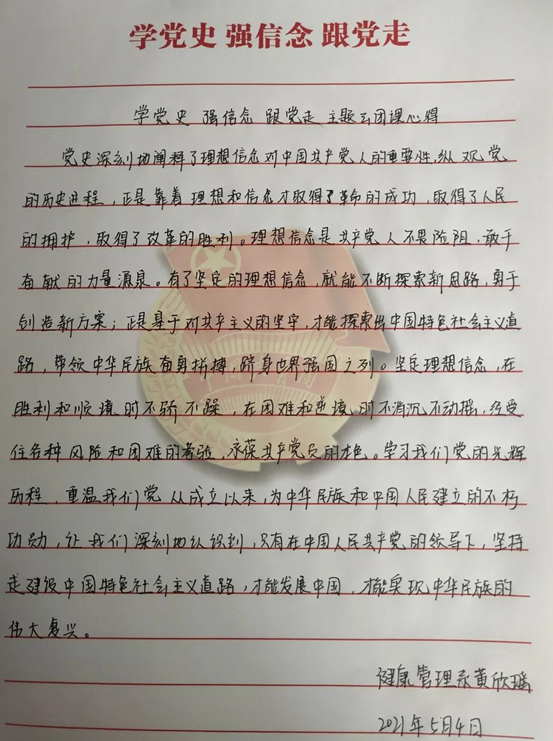 学党史 强信念 跟党走
学党史 强信念 跟党走 主题云团课心得
党史深刻地阐释了理想信念对中国共产党人的重要性,纵观党
的历史进程,正是靠着理想和信念才取得了革命的成功,取得了人民
的拥护,取得了改革的胜利。理想信念是共产党人不畏险阻,敢于
奋献的力量源泉。有了坚定的理想信念,就能不断探索新思路,勇于
创造新方案;正是基于对共产主义的坚守,才能探索出中国特色社会主义道
路,带领中华民族奋身拼搏,跻身世界强国之列。坚定理想信念,在
胜利和顺境时不骄不躁,在困难和逆境时不消沉不动摇,经受
住各种风险和困难的考验,永葆共产党员的本色。学习我们党的光辉
历程,重温我们党从成立以来,为中华民族和中国人民建立的不朽
功勋,让我们深刻地认识到,只有在中国人民共产党的领导下,坚持
走建设中国特色社会主义道路,才能发展中国,才能实现中华民族的
伟大复兴。
健康管理系黄欣瑶
2021年5月4日